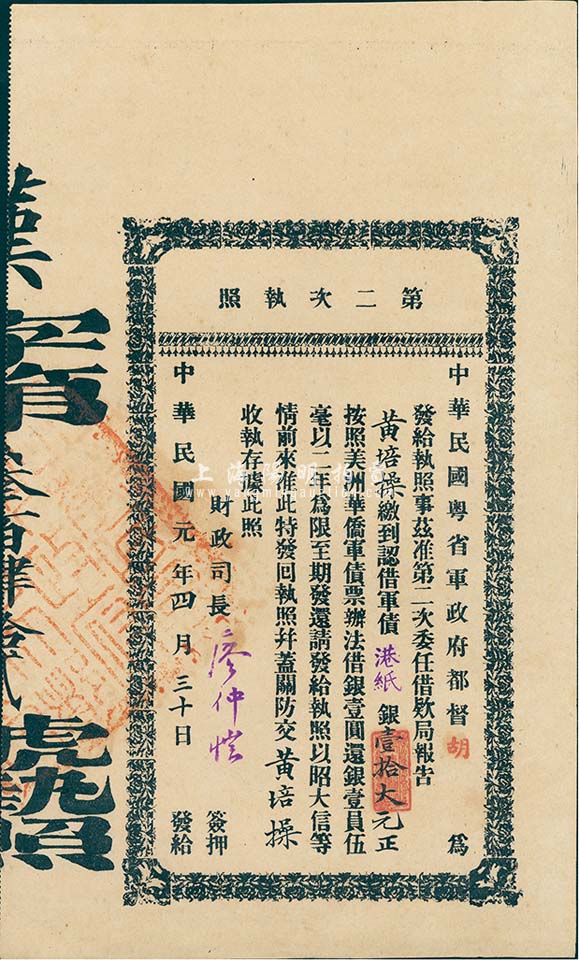 第二次執照
中華民國粵省軍政府都督胡 為
發給執照事茲准第二次委任借款局報告
黃培操繳到認借軍債港紙銀壹拾大元正
按照美洲華僑軍債票辦法借銀壹圓還銀壹員伍
毫以二年為限至期發還請發給執照以昭大信等
情前來准此特發回執照幷蓋關防交黃培操
收執存據此照
財政司長廖仲愷 簽押
中華民國元年四月三十日 發給
叁百肆拾貳號執照
上海陽明拍賣